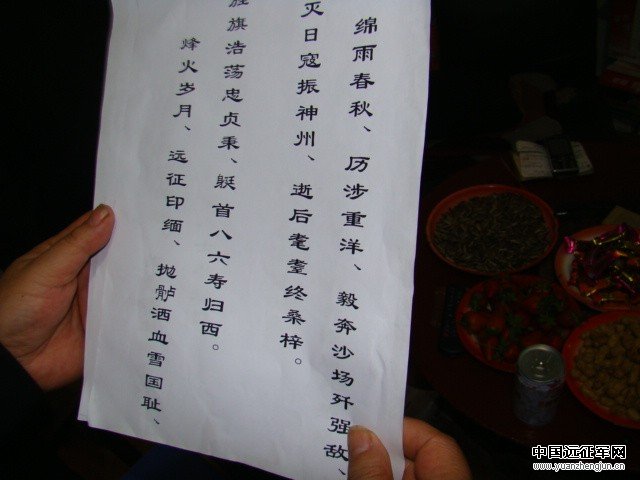 绵雨春秋、历涉重洋、毅奔沙场歼强敌、
灭日寇振神州、逝后耄耋终桑梓。
旗浩荡忠贞秉、首八六寿归西。
烽火岁月、远征印缅、抛洒血雪国耻、
中国远征军网
www.yuanzhengjun.cn